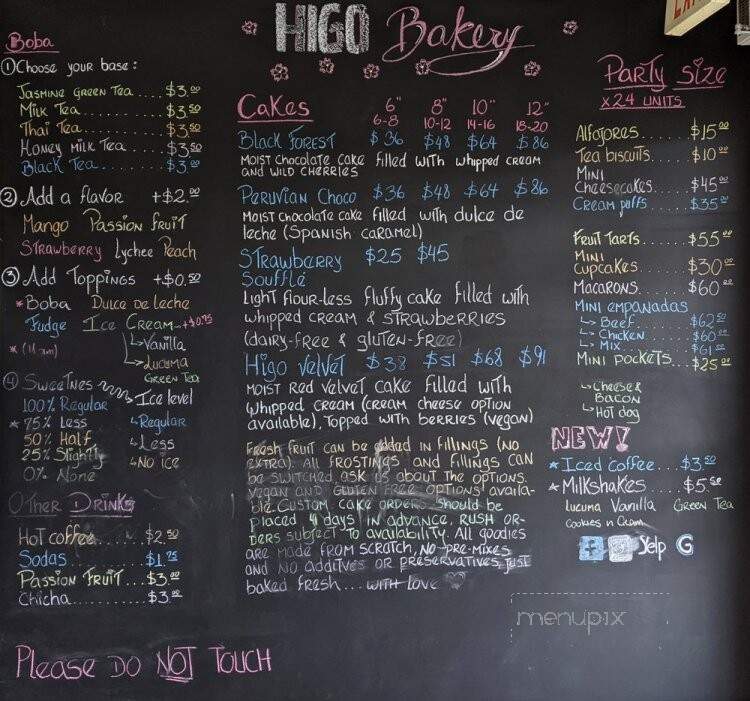 HIGO Bakery
Boba
① Choose your base:
Jasmine Green Tea.....$3.00
Milk Tea..........$3.50
Thai Tea..........$3.50
Honey Milk Tea.....$3.50
Black Tea..........$3.00
② Add a flavor +$2.00
Mango Passion Fruit
Strawberry Lychee Peach
③ Add Toppings +$0.50
*Boba Dulce de Leche
Fudge Ice Cream +$0.75
↳ Vanilla
↳ Lucuma
Green Tea
④ Sweetnes Ice level
100% Regular ↳ Regular
*75% Less ↳ Less
50% Half ↳ No ice
25% Slightly
0% None
Other Drinks
Hot coffee.......$2.50
Sodas............$1.75
Passion Fruit...$3.00
Chicha...........$3.00
Please DO NOT TOUCH
Cakes 6" 8" 10" 12"
6-8 10-12 14-16 18-20
Black Forest $36 $48 $64 $86
Moist chocolate cake filled with whipped cream
and wild cherries
Peruvian Choco $36 $48 $64 $86
Moist chocolate cake filled with dulce de
leche (Spanish caramel)
Strawberry $25 $45
Soufflé
Light flour-less fluffy cake filled with
whipped cream & strawberries
(dairy-free & gluten-free)
Higo Velvet $38 $51 $68 $91
Moist red velvet cake filled with
whipped cream (cream cheese option
available), topped with berries (vegan)
Fresh fruit can be added in fillings (no
extra). All frostings and fillings can
be switched ask us about the options.
Vegan and gluten free options availa-
ble. Custom cake orders should be
placed 4 days in advance, rush or-
ders subject to availability. All goodies
are made from scratch, no pre-mixes
and no additives or preservatives, just
baked fresh... with love
Party Size
x24 units
Alfajores......$15.00
Tea biscuits...$10.00
Mini
Cheesecakes...$45.00
Cream puffs...$35.00
Fruit Tarts.....$55.00
Mini
Cupcakes......$30.00
Macarons.....$60.00
Mini empanadas
↳ Beef........$62.50
↳ Chicken.....$60.00
↳ Mix.........$61.00
Mini pockets...$25.00
↳ Cheese &
Bacon
↳ Hot dog
NEW!
*Iced coffee...$3.50
*Milkshakes...$5.50
Lucuma Vanilla Green Tea
Cookies n Cream
f Yelp G
menupix